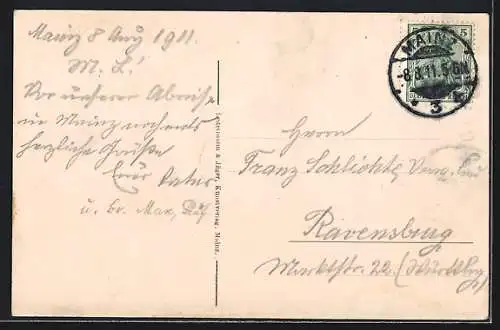 Mainz 8 Aug 1911.
M. L.!
Vor unserer Abreise
in Mainz nochmals
herzliche Grüße
Euer Vater
u. Br. Max,
Kunstverlag, Mainz.
5
MAINZ
-8.8.11.5-6N.
* 3
Herrn
Franz Schlichte,
Ravensburg
Marktstr. 22. (Württbg)